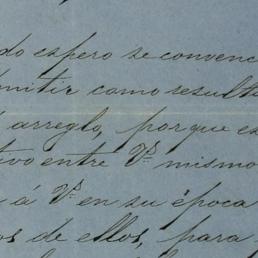 do espero se convenc
mitir como result
arreglo, porque es
tivo entre Vs mismo
á Vs en su época
os de ellos, para